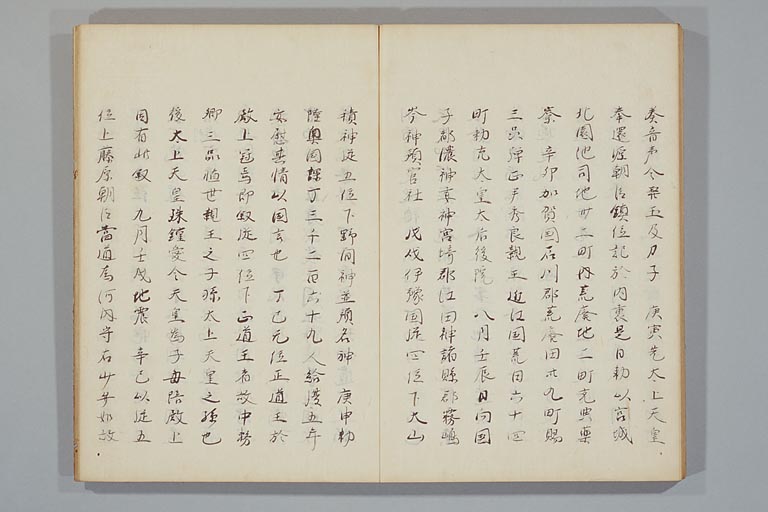 奏音声令弄玉及刀子 庚寅先太上天皇
奉還源朝臣鎮位記於内裏是日勅以宮城
北園池司地廿二町内荒廃地二町充典薬
寮 辛卯加賀国石川郡荒廃田卅九町賜
三品弾正尹秀良親王近江国荒田六十四
町勅充太皇大后後院 八月壬辰日向国
子都濃神妻神宮埼郡江田神諸縣郡霧嶋
岑神預官社 戊戌伊豫国従四位下大山
積神従五位下野間神並預名神 庚申勅
陸奥国課丁三千二百六十九人給復五年
安慰其情以国言也 丁巳无位正道王於
殿上冠焉即叙従四位下正道王者故中務
卿三品恒世親王之子孫太上天皇之孫也
後太上天皇殊鍾愛令天皇為子毎陪殿上
因有此叙 九月壬戌地震 辛巳以従五
位上藤原朝臣當道為河内守右少弁如故